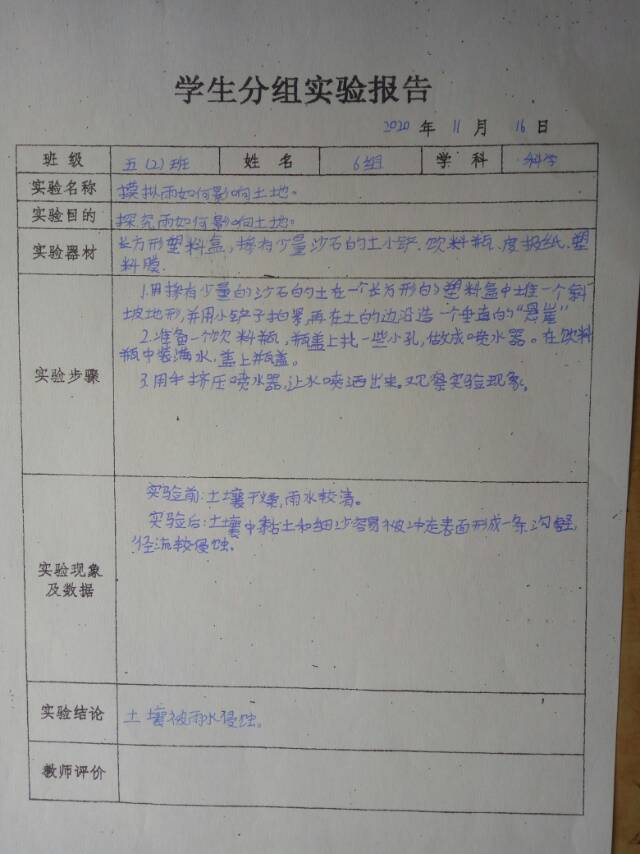 学生分组实验报告
2020 年 11 月 16 日
班级 五(2)班 姓名 6组 学科 科学
实验名称 摸拟雨如何影响土地。
实验目的 探究雨如何影响土地。
实验器材 长方形塑料盒,掺有少量沙石的土小铲、饮料瓶、废报纸、塑
料膜.
1.用掺有少量的沙石的土在一个长方形的塑料盒中堆一个斜
坡地形,并用小铲子拍紧,再在土的边沿造一个垂直的“悬崖”
2.准备一个饮料瓶,瓶盖上扎一些小孔,做成喷水器。在饮料
瓶中装满水,盖上瓶盖。
实验步骤
3.用手挤压喷水器,让水喷洒出来。观察实验现象。
实验前:土壤干燥,雨水较清。
实验后:土壤中黏土和细沙容易被冲走表面形成一条沟
径流较侵蚀。
实验现象
及数据
实验结论 土壤被雨水侵蚀。
教师评价